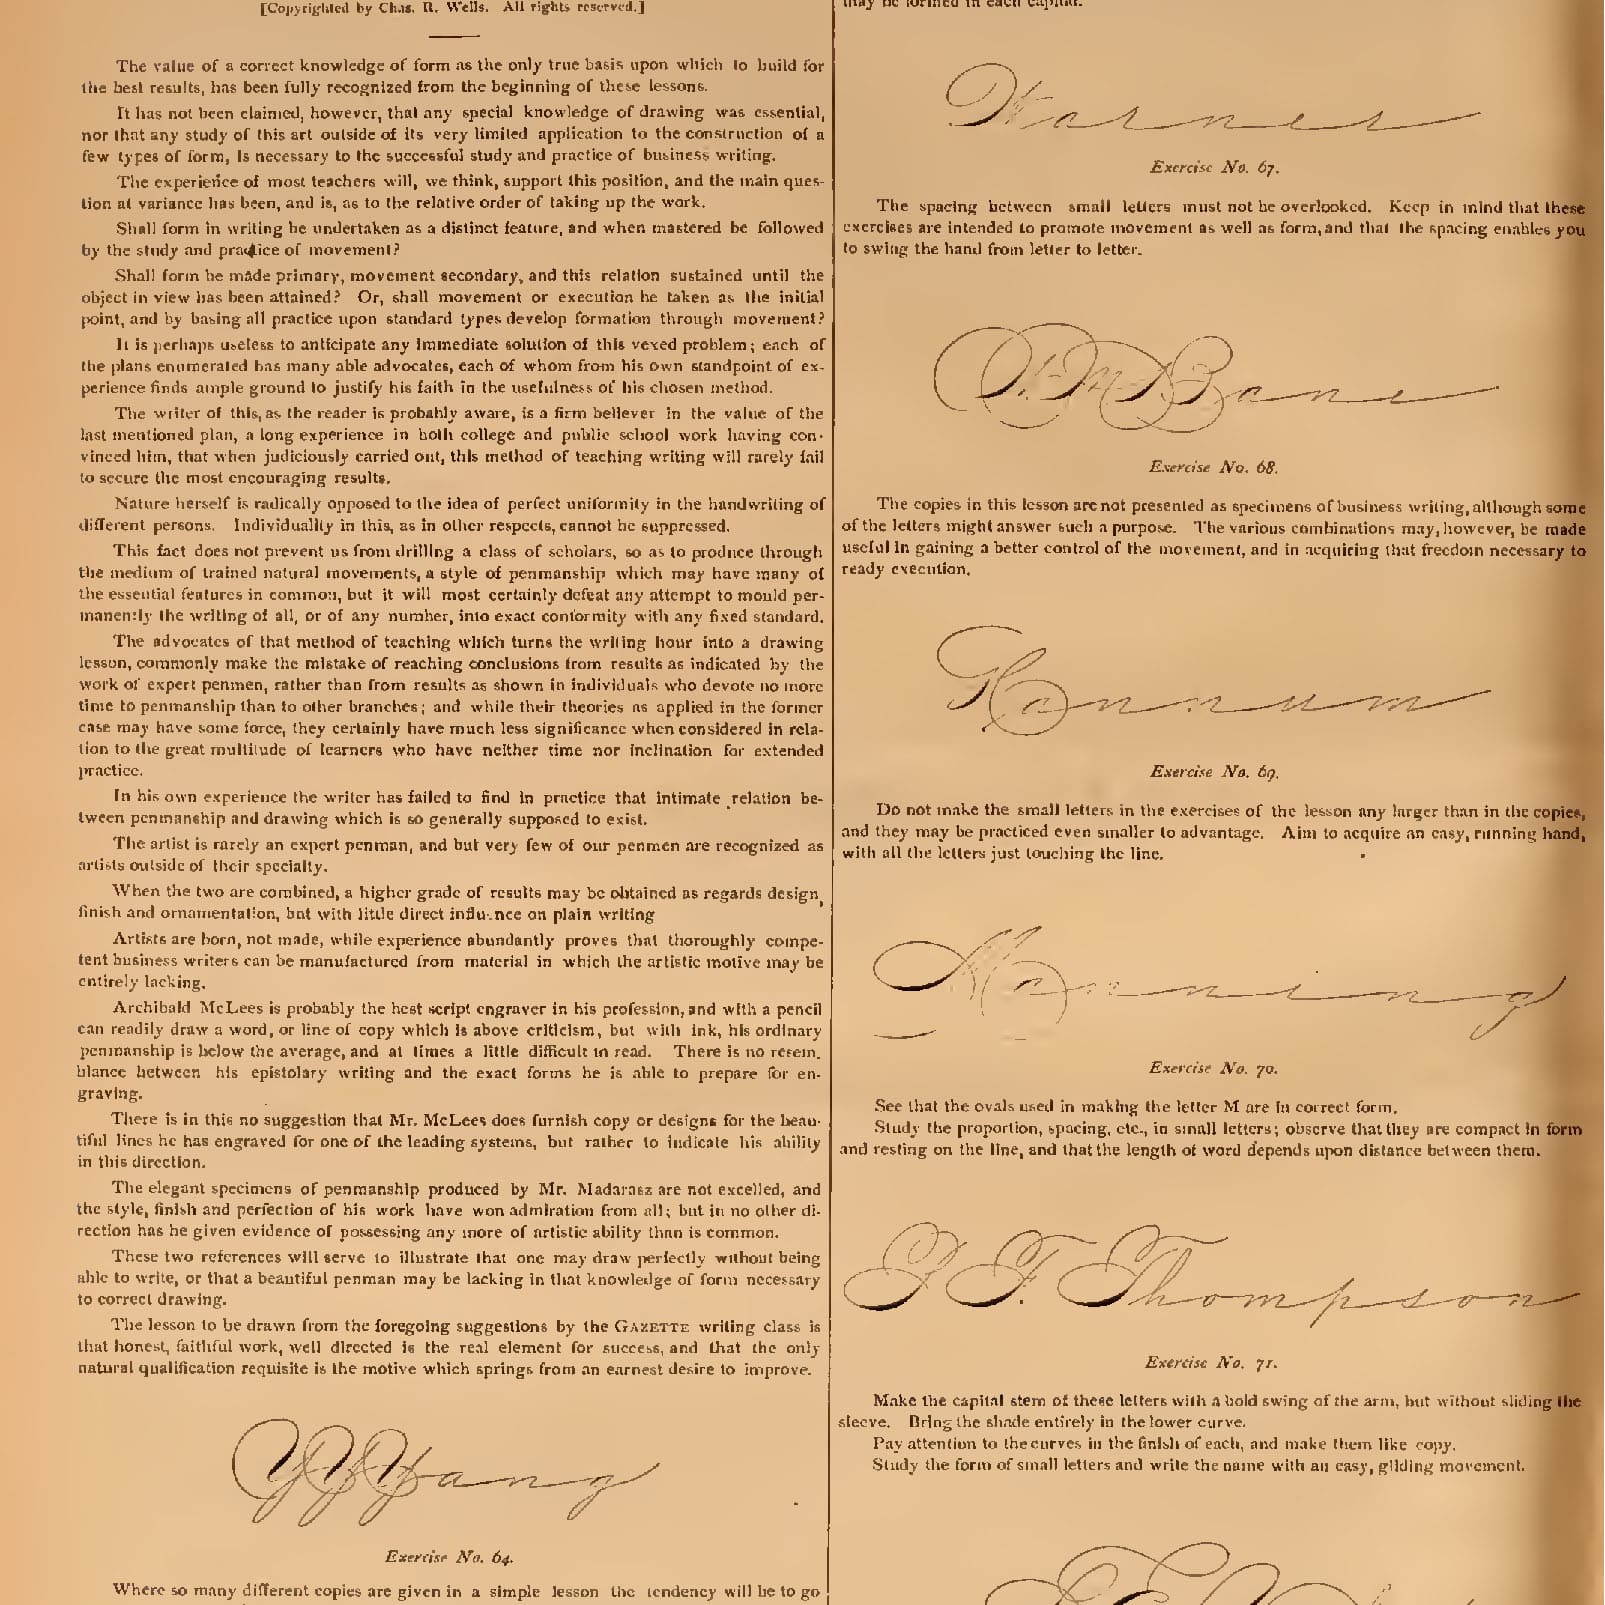 [Copyrighted by Chas. R. Wells. All rights reserved.]
The value of a correct knowledge of form as the only true basis upon which to build for
the best results, has been fully recognized from the beginning of these lessons.
It has not been claimed, however, that any special knowledge of drawing was essential,
nor that any study of this art outside of its very limited application to the construction of a
few types of form, is necessary to the successful study and practice of business writing.
The experience of most teachers will, we think, support this position, and the main ques-
tion at variance has been, and is, as to the relative order of taking up the work.
Shall form in writing be undertaken as a distinct feature, and when mastered be followed
by the study and practice of movement?
Shall form be made primary, movement secondary, and this relation sustained until the
object in view has been attained? Or, shall movement or execution be taken as the initial
point, and by basing all practice upon standard types develop formation through movement?
It is perhaps useless to anticipate any immediate solution of this vexed problem; each of
the plans enumerated has many able advocates, each of whom from his own standpoint of ex-
perience finds ample ground to justify his faith in the usefulness of his chosen method.
The writer of this, as the reader is probably aware, is a firm believer in the value of the
last mentioned plan, a long experience in both college and public school work having con-
vinced him, that when judiciously carried out, this method of teaching writing will rarely fail
to secure the most encouraging results.
Nature herself is radically opposed to the idea of perfect uniformity in the handwriting of
different persons. Individuality in this, as in other respects, cannot be suppressed.
This fact does not prevent us from drilling a class of scholars, so as to produce through
the medium of trained natural movements, a style of penmanship which may have many of
the essential features in common, but it will most certainly defeat any attempt to mould per-
manently the writing of all, or of any number, into exact conformity with any fixed standard.
The advocates of that method of teaching which turns the writing hour into a drawing
lesson, commonly make the mistake of reaching conclusions from results as indicated by the
work of expert penmen, rather than from results as shown in individuals who devote no more
time to penmanship than to other branches; and while their theories as applied in the former
case may have some force, they certainly have much less significance when considered in rela-
tion to the great multitude of learners who have neither time nor inclination for extended
practice.
In his own experience the writer has failed to find in practice that intimate relation be-
tween penmanship and drawing which is so generally supposed to exist.
The artist is rarely an expert penman, and but very few of our penmen are recognized as
artists outside of their specialty.
When the two are combined, a higher grade of results may be obtained as regards design,
finish and ornamentation, but with little direct influence on plain writing
Artists are born, not made, while experience abundantly proves that thoroughly compe-
tent business writers can be manufactured from material in which the artistic motive may be
entirely lacking.
Archibald McLees is probably the best script engraver in his profession, and with a pencil
can readily draw a word, or line of copy which is above criticism, but with ink, his ordinary
penmanship is below the average, and at times a little difficult to read. There is no resem-
blance between his epistolary writing and the exact forms he is able to prepare for en-
graving.
There is in this no suggestion that Mr. McLees does furnish copy or designs for the beau-
tiful lines he has engraved for one of the leading systems, but rather to indicate his ability
in this direction.
The elegant specimens of penmanship produced by Mr. Madarasz are not excelled, and
the style, finish and perfection of his work have won admiration from all; but in no other di-
rection has he given evidence of possessing any more of artistic ability than is common.
These two references will serve to illustrate that one may draw perfectly without being
able to write, or that a beautiful penman may be lacking in that knowledge of form necessary
to correct drawing.
The lesson to be drawn from the foregoing suggestions by the GAZETTE writing class is
that honest, faithful work, well directed is the real element for success, and that the only
natural qualification requisite is the motive which springs from an earnest desire to improve.
Y Y Yang
Exercise No. 64.
Where so many different copies are given in a simple lesson the tendency will be to go
may be formed in each capital.
Warner
Exercise No. 67.
The spacing between small letters must not be overlooked. Keep in mind that these
exercises are intended to promote movement as well as form, and that the spacing enables you
to swing the hand from letter to letter.
Bane
Exercise No. 68.
The copies in this lesson are not presented as specimens of business writing, although some
of the letters might answer such a purpose. The various combinations may, however, be made
useful in gaining a better control of the movement, and in acquiring that freedom necessary to
ready execution.
Hannum
Exercise No. 69.
Do not make the small letters in the exercises of the lesson any larger than in the copies,
and they may be practiced even smaller to advantage. Aim to acquire an easy, running hand,
with all the letters just touching the line.
Manning
Exercise No. 70.
See that the ovals used in making the letter M are in correct form.
Study the proportion, spacing, etc., in small letters; observe that they are compact in form
and resting on the line, and that the length of word depends upon distance between them.
Thompson
Exercise No. 71.
Make the capital stem of these letters with a bold swing of the arm, but without sliding the
sleeve. Bring the shade entirely in the lower curve.
Pay attention to the curves in the finish of each, and make them like copy.
Study the form of small letters and write the name with an easy, gliding movement.